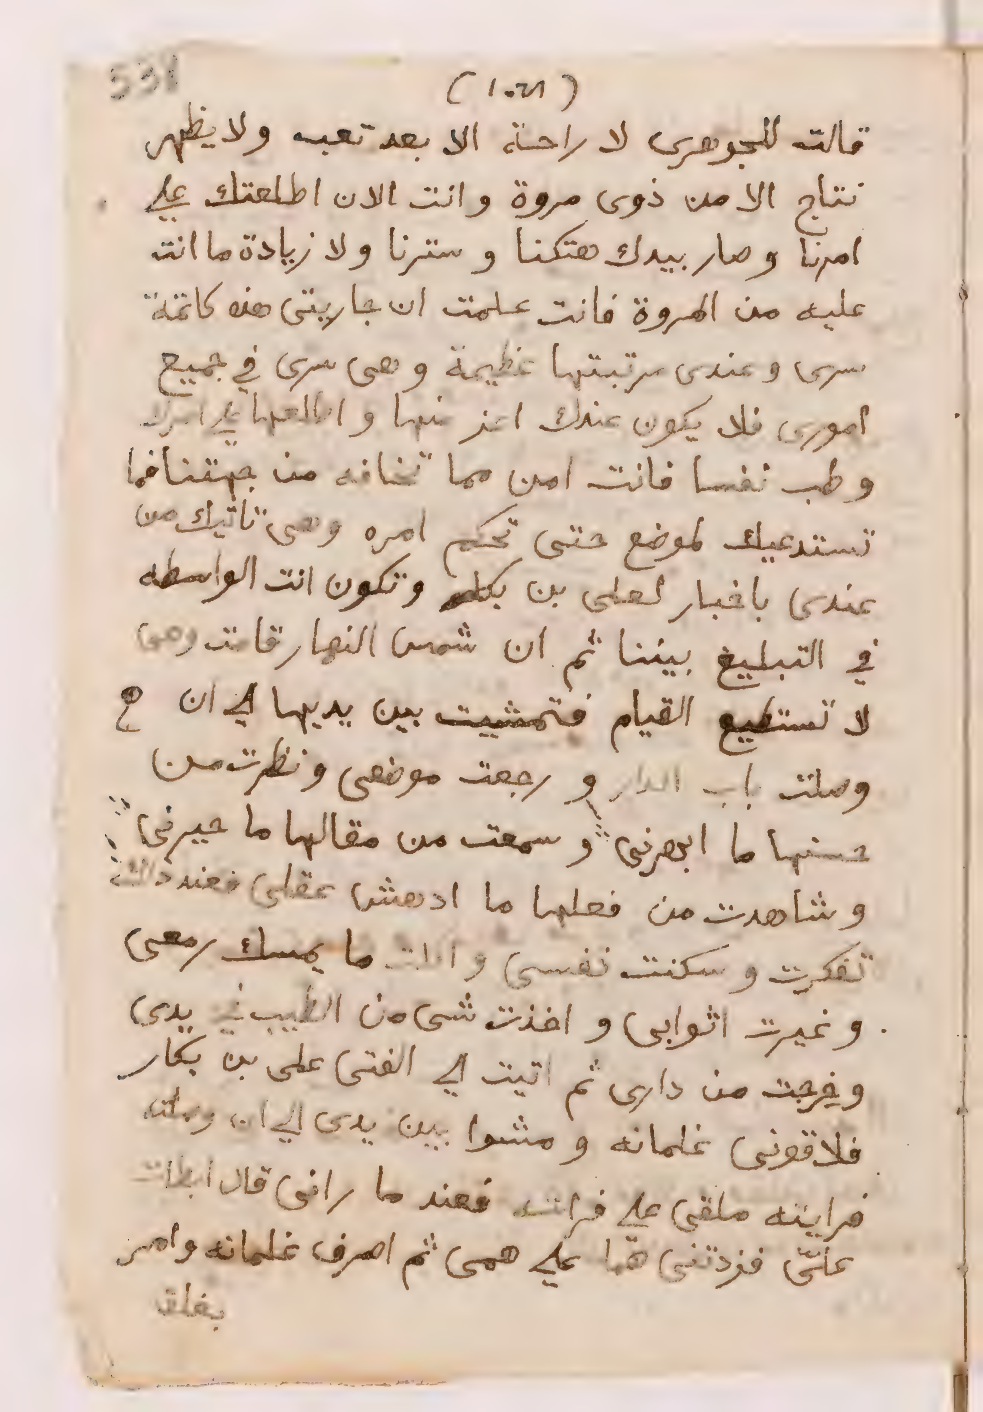 531
قالت للجوهرى لا راحة الا بعد تعب ولا يظهر
نتاج الا من ذوى مروة وانت الان اطلعتك على
امرنا وصار بيدك هتكنا وسترنا ولا زيادة ما انت
عليه من المروة فانت علمت ان جاريتى هذه كاتمة
سرى وعندى مرتبتها عظيمة وهى سرى في جميع
امورى فلا يكون عندك اعز منها واطلعها على امرك
وطب نفسا فانت امن مما تخافه من جهتنا فما
تستدعيك لموضع حتى تحكم امره وهى تاتيك من
عندى باخبار لعلى بن بكار وتكون انت الواسطه
في التبليغ بيننا ثم ان شمس النهار قامت وهى
لا تستطيع القيام فتمشيت بين يديها الى ان
وصلت باب الدار ورجعت موضعى ونظرت من
حسنها ما ابهرنى وسمعت من مقالها ما حيرنى
وشاهدت من فعلها ما ادهش عقلى فعند ذالك
تفكرت وسكنت نفسى واكلت ما يمسك رمعى
وغيرت اثوابى واخذت شى من الطيب في يدى
وخرجت من دارى ثم اتيت الى الفتى على بن بكار
فلاقونى غلمانه ومشوا بين يدى الى ان وصلت
فرايته ملقى على فراشه فعند ما رانى قال ابطات
علىّ فزدتنى همّا على همى ثم اصرف غلمانه وامر
بغلق